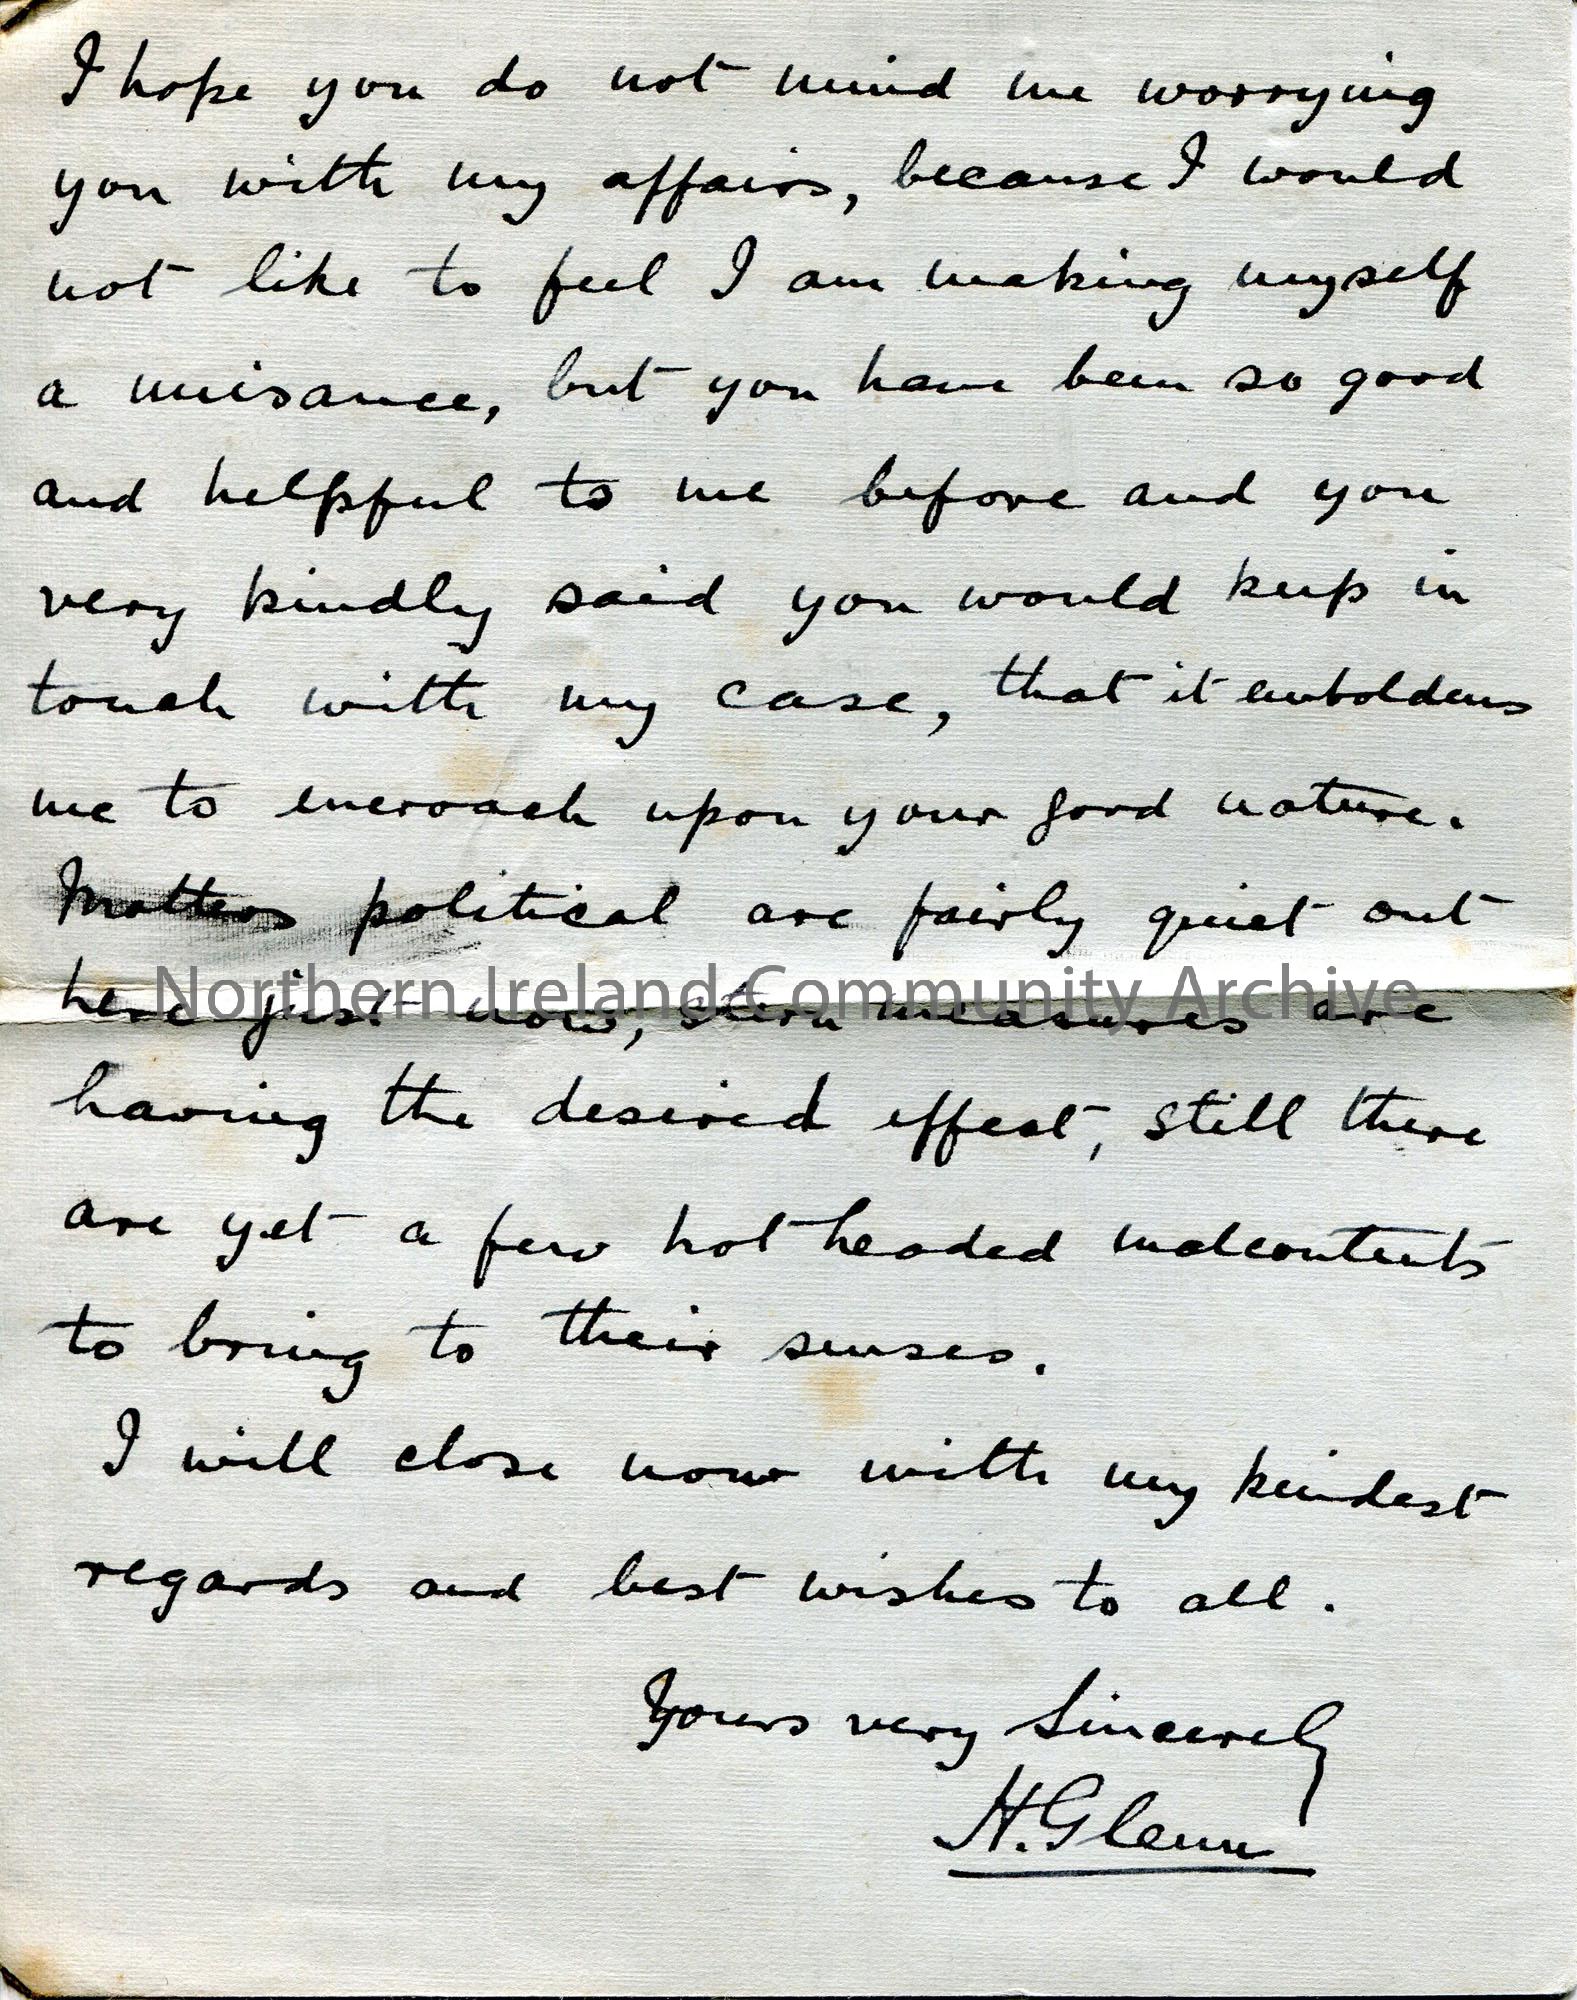 I hope you do not mind me worrying
you with my affairs, because I would
not like to feel I am making myself
a nuisance, but you have been so good
and helpful to me before and you
very kindly said you would keep in
touch with my case, that it emboldens
me to encroach upon your good nature.
Matters political are fairly quiet out
here just now, stern measures are
Northern Ireland Community Archive
having the desired effect, still there
are yet a few hot headed malcontents
to bring to their senses.
I will close now with my kindest
regards and best wishes to all.
Yours very Sincerely
H. Glenn